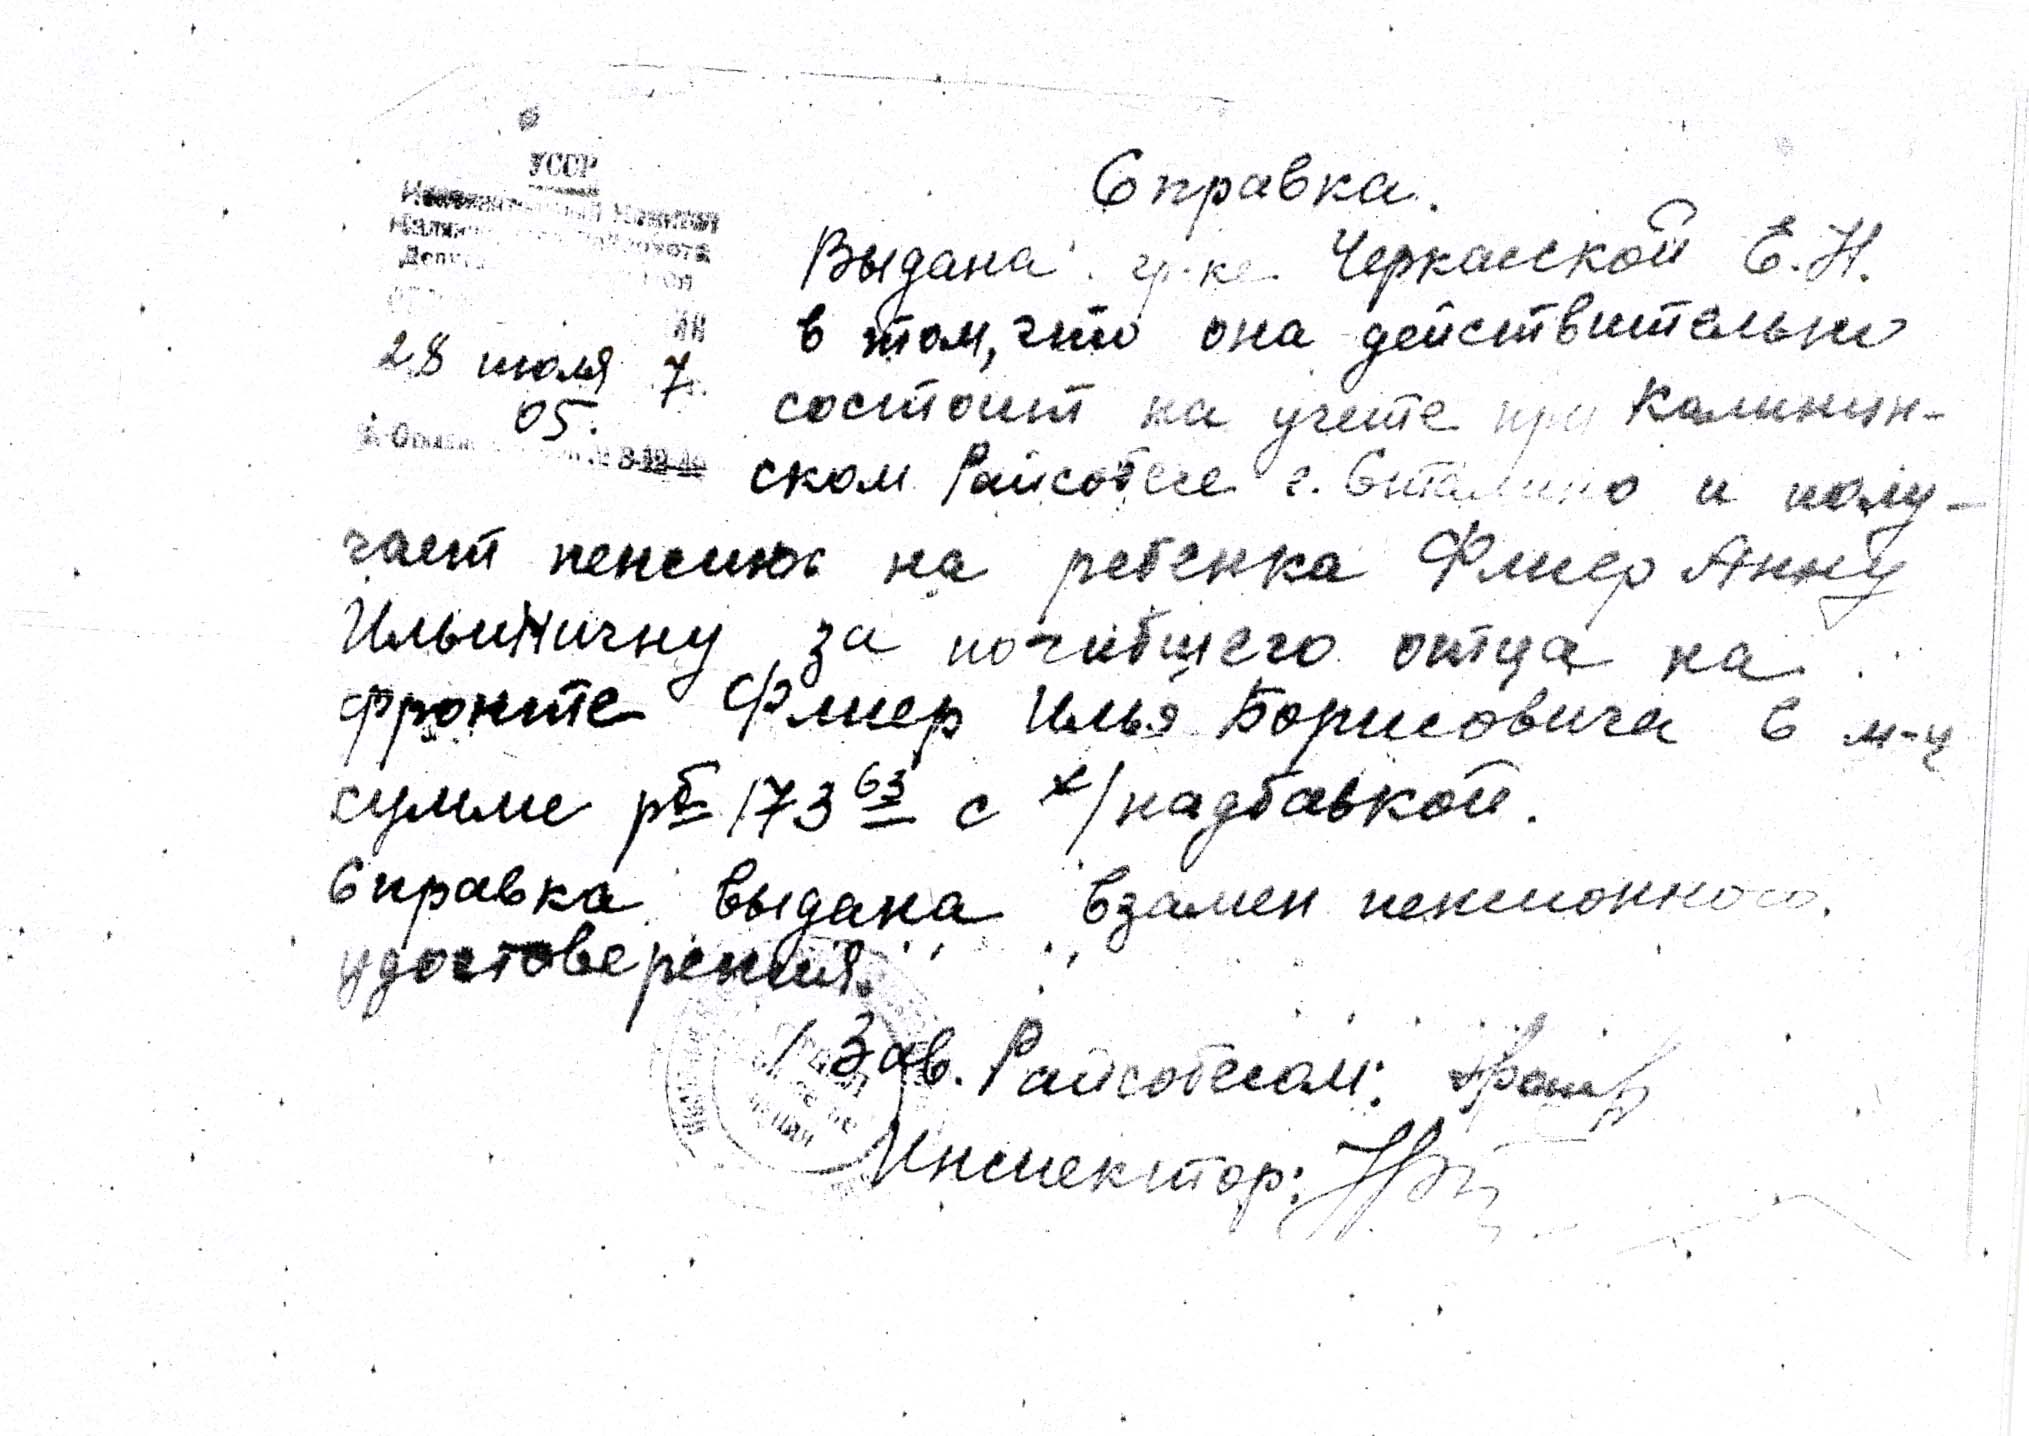 УССР
28 июля 7
05.
Справка.
Выдана гр-ке Черкасской Е.Н.
в том, что она действительно
состоит на учете при Калинин-
ском Райсобесе г. Сталино и полу-
чает пенсию на ребенка Флиер Анну
Ильиничну за погибшего отца на
фронте Флиер Илья Борисовича в м-ц
сумме рб 173 63 с х/надбавкой.
Справка выдана взамен пенсионного
удостоверения.
Зав. Райсобесом:
Инспектор: